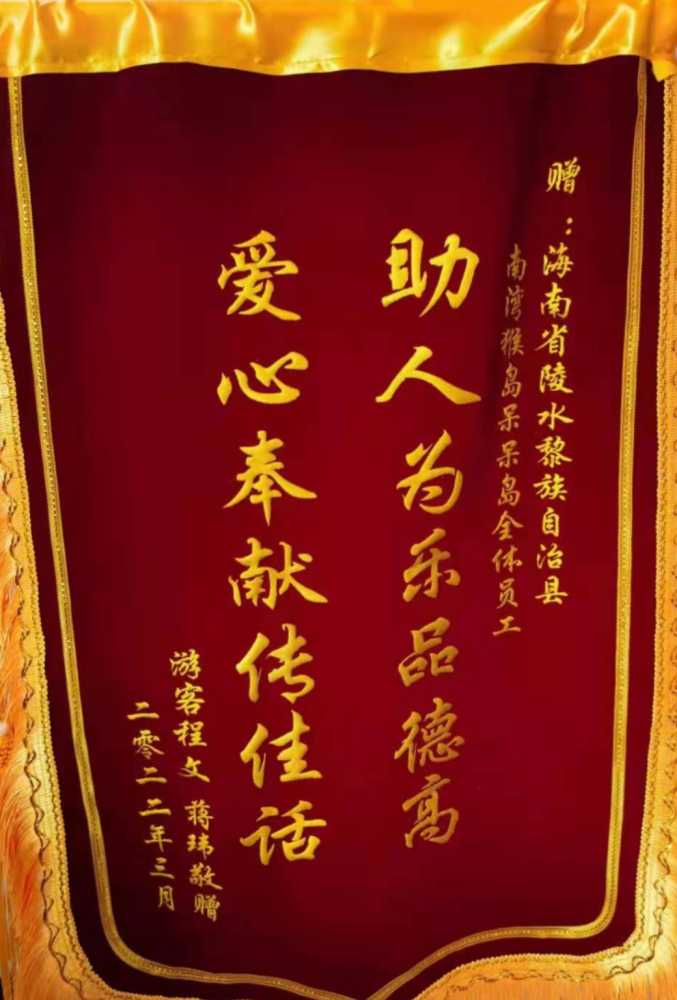 赠：海南省陵水黎族自治县
南湾猴岛呆呆岛全体员工
助人为乐品德高
爱心奉献传佳话
游客程文 蒋玮敬赠
二零二二年三月